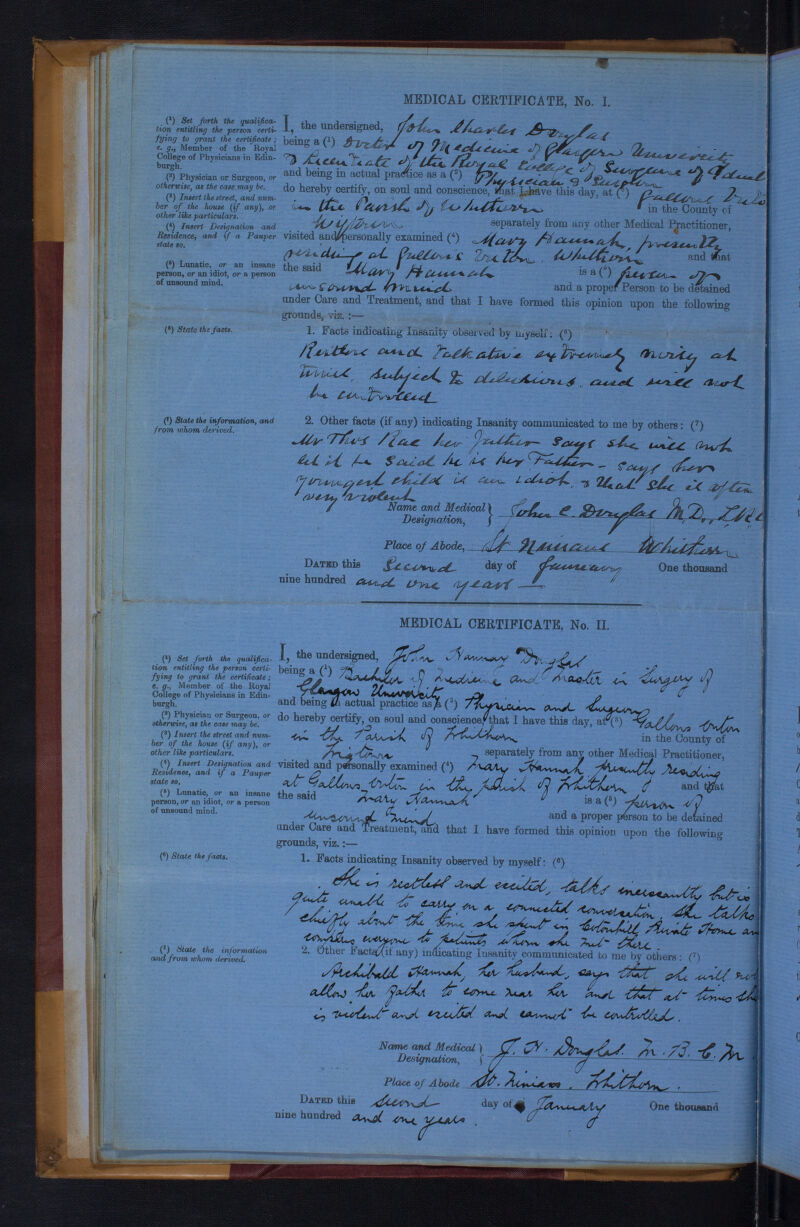 MEDICAL CERTIFICATE, No. I.
(1) Set forth the qualifica-
tion entitling the person certi-
fying to grant the certificate;
e. g., Member of the Royal
College of Physicians in Edin-
burgh.
(2) Physician or Surgeon, or
otherwise, as the case may be.
(3) Insert the street, and num-
ber of the house (if any), or
other like particulars.
(4) Insert Designation and
Residence, and if a Pauper
state so.
(5) Lunatic, or an insane
person, or an idiot, or a person
of unsound mind.
I, the undersigned, John Charles Douglas
being a (1) Doctor of Medicine of Glasgow University
& Licentiate of the Royal College of Surgeons of Edin
and being in actual practice as a (2) Physician & Surgeon
do hereby certify, on soul and conscience, that I have this day, at (3) Gallows
in the Parish of Whithorn in the County of
Wigtown separately from any other Medical Practitioner,
visited and personally examined (4) Mary Hannah, presently
residing at Gallows Whithorn and that
the said Mary Hannah is a (5) person of
unsound mind and a proper Person to be detained
under Care and Treatment, and that I have formed this opinion upon the following
grounds, viz. :—
(6) State the facts.
1. Facts indicating Insanity observed by myself: (6)
Restless and talkative extremely noisy at
times, subject to delusions and will not
be controlled
(7) State the information, and
from whom derived.
2. Other facts (if any) indicating Insanity communicated to me by others: (7)
Mr Thos Rae her father says she will not
let it be said he is her Father - says her
youngest child is an idiot & that she is often
very violent
Name and Medical Designation, John C. Douglas M.D., L.R.C
Place of Abode, St Ninians Whithorn
DATED this Second day of January One thousand
nine hundred and one years —
MEDICAL CERTIFICATE, No. II.
(1) Set forth the qualifica-
tion entitling the person certi-
fying to grant the certificate;
e. g., Member of the Royal
College of Physicians in Edin-
burgh.
(2) Physician or Surgeon, or
otherwise, as the case may be.
(3) Insert the street and num-
ber of the house (if any), or
other like particulars.
(4) Insert Designation and
Residence, and if a Pauper
state so.
(5) Lunatic, or an insane
person, or an idiot, or a person
of unsound mind.
I, the undersigned, John Hannay Douglas
being a (1) Bachelor of Medicine and Master in Surgery of
Glasgow University
and being in actual practice as a (2) Physician and Surgeon
do hereby certify, on soul and conscience, that I have this day, at (3) Gallows
in the Parish of Whithorn in the County of
Wigtown separately from any other Medical Practitioner,
visited and personally examined (4) Mary Hannah presently residing
at Gallows in the parish of Whithorn and that
the said Mary Hannah is a (5) person of
unsound mind and a proper person to be detained
under Care and Treatment, and that I have formed this opinion upon the following
grounds, viz. :—
(6) State the facts.
1. Facts indicating Insanity observed by myself: (6)
She is restless and excited, talks incessantly but is
quite unable to carry on a connected conversation. She talks
chiefly about the time she spent in Private Home an
everyone to patients whom she met there.
(7) State the information
and from whom derived.
2. Other Facts (if any) indicating Insanity communicated to me by others: (7)
Archibald Hannah, her husband, says that she will not
allow her father to come near her and that at times she
is violent and excited and cannot be controlled.
Name and Medical Designation, J. H. Douglas. M. B. C. M.
Place of Abode St. Ninians. Whithorn.
DATED this Second day of January One thousand
nine hundred and one years.